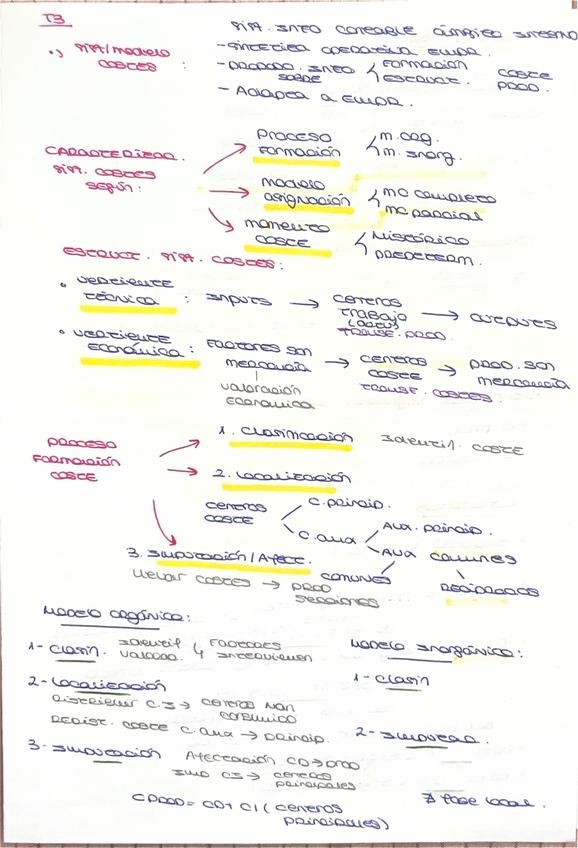 T3
sist. info contable ámbito interno
•) sist/modelo costes :
- sintetiza operativa empr.
- proporc. info sobre < formación estruct. coste prod.
- Adapta a empr.
caracterizar sist. costes según:
proceso formación < m. org.
m. inorg.
modelo asignación < mc completo
mc parcial
momento coste < histórico
predeterm.
Estruct. sist. costes:
• vertiente técnica : inputs → centros trabajo → outputs
(lotus)
transf. prod.
• vertiente económica : factores son mercancía → centros coste → prod. son mercancía
valoración económica
transf. costes
proceso formación coste
1. clasificación identif. coste
2. localización
centros coste < c. princip.
c. aux < Aux. princip.
Aux comunes
comunes
recíprocos
3. imputación/Afect.
llevar costes → prod
secciones
modelo orgánico:
1- clasif. identif y factores
valorac. y intervienen
2- localización
distribuir C.I → centros han consumido
redist. coste c. aux → princip.
3- imputación Afectación CD → prod
imp CI → centros principales
Cprod = CD + CI (centros principales)
modelo inorgánico:
1- clasif
2- imputar.
∄ fase local.